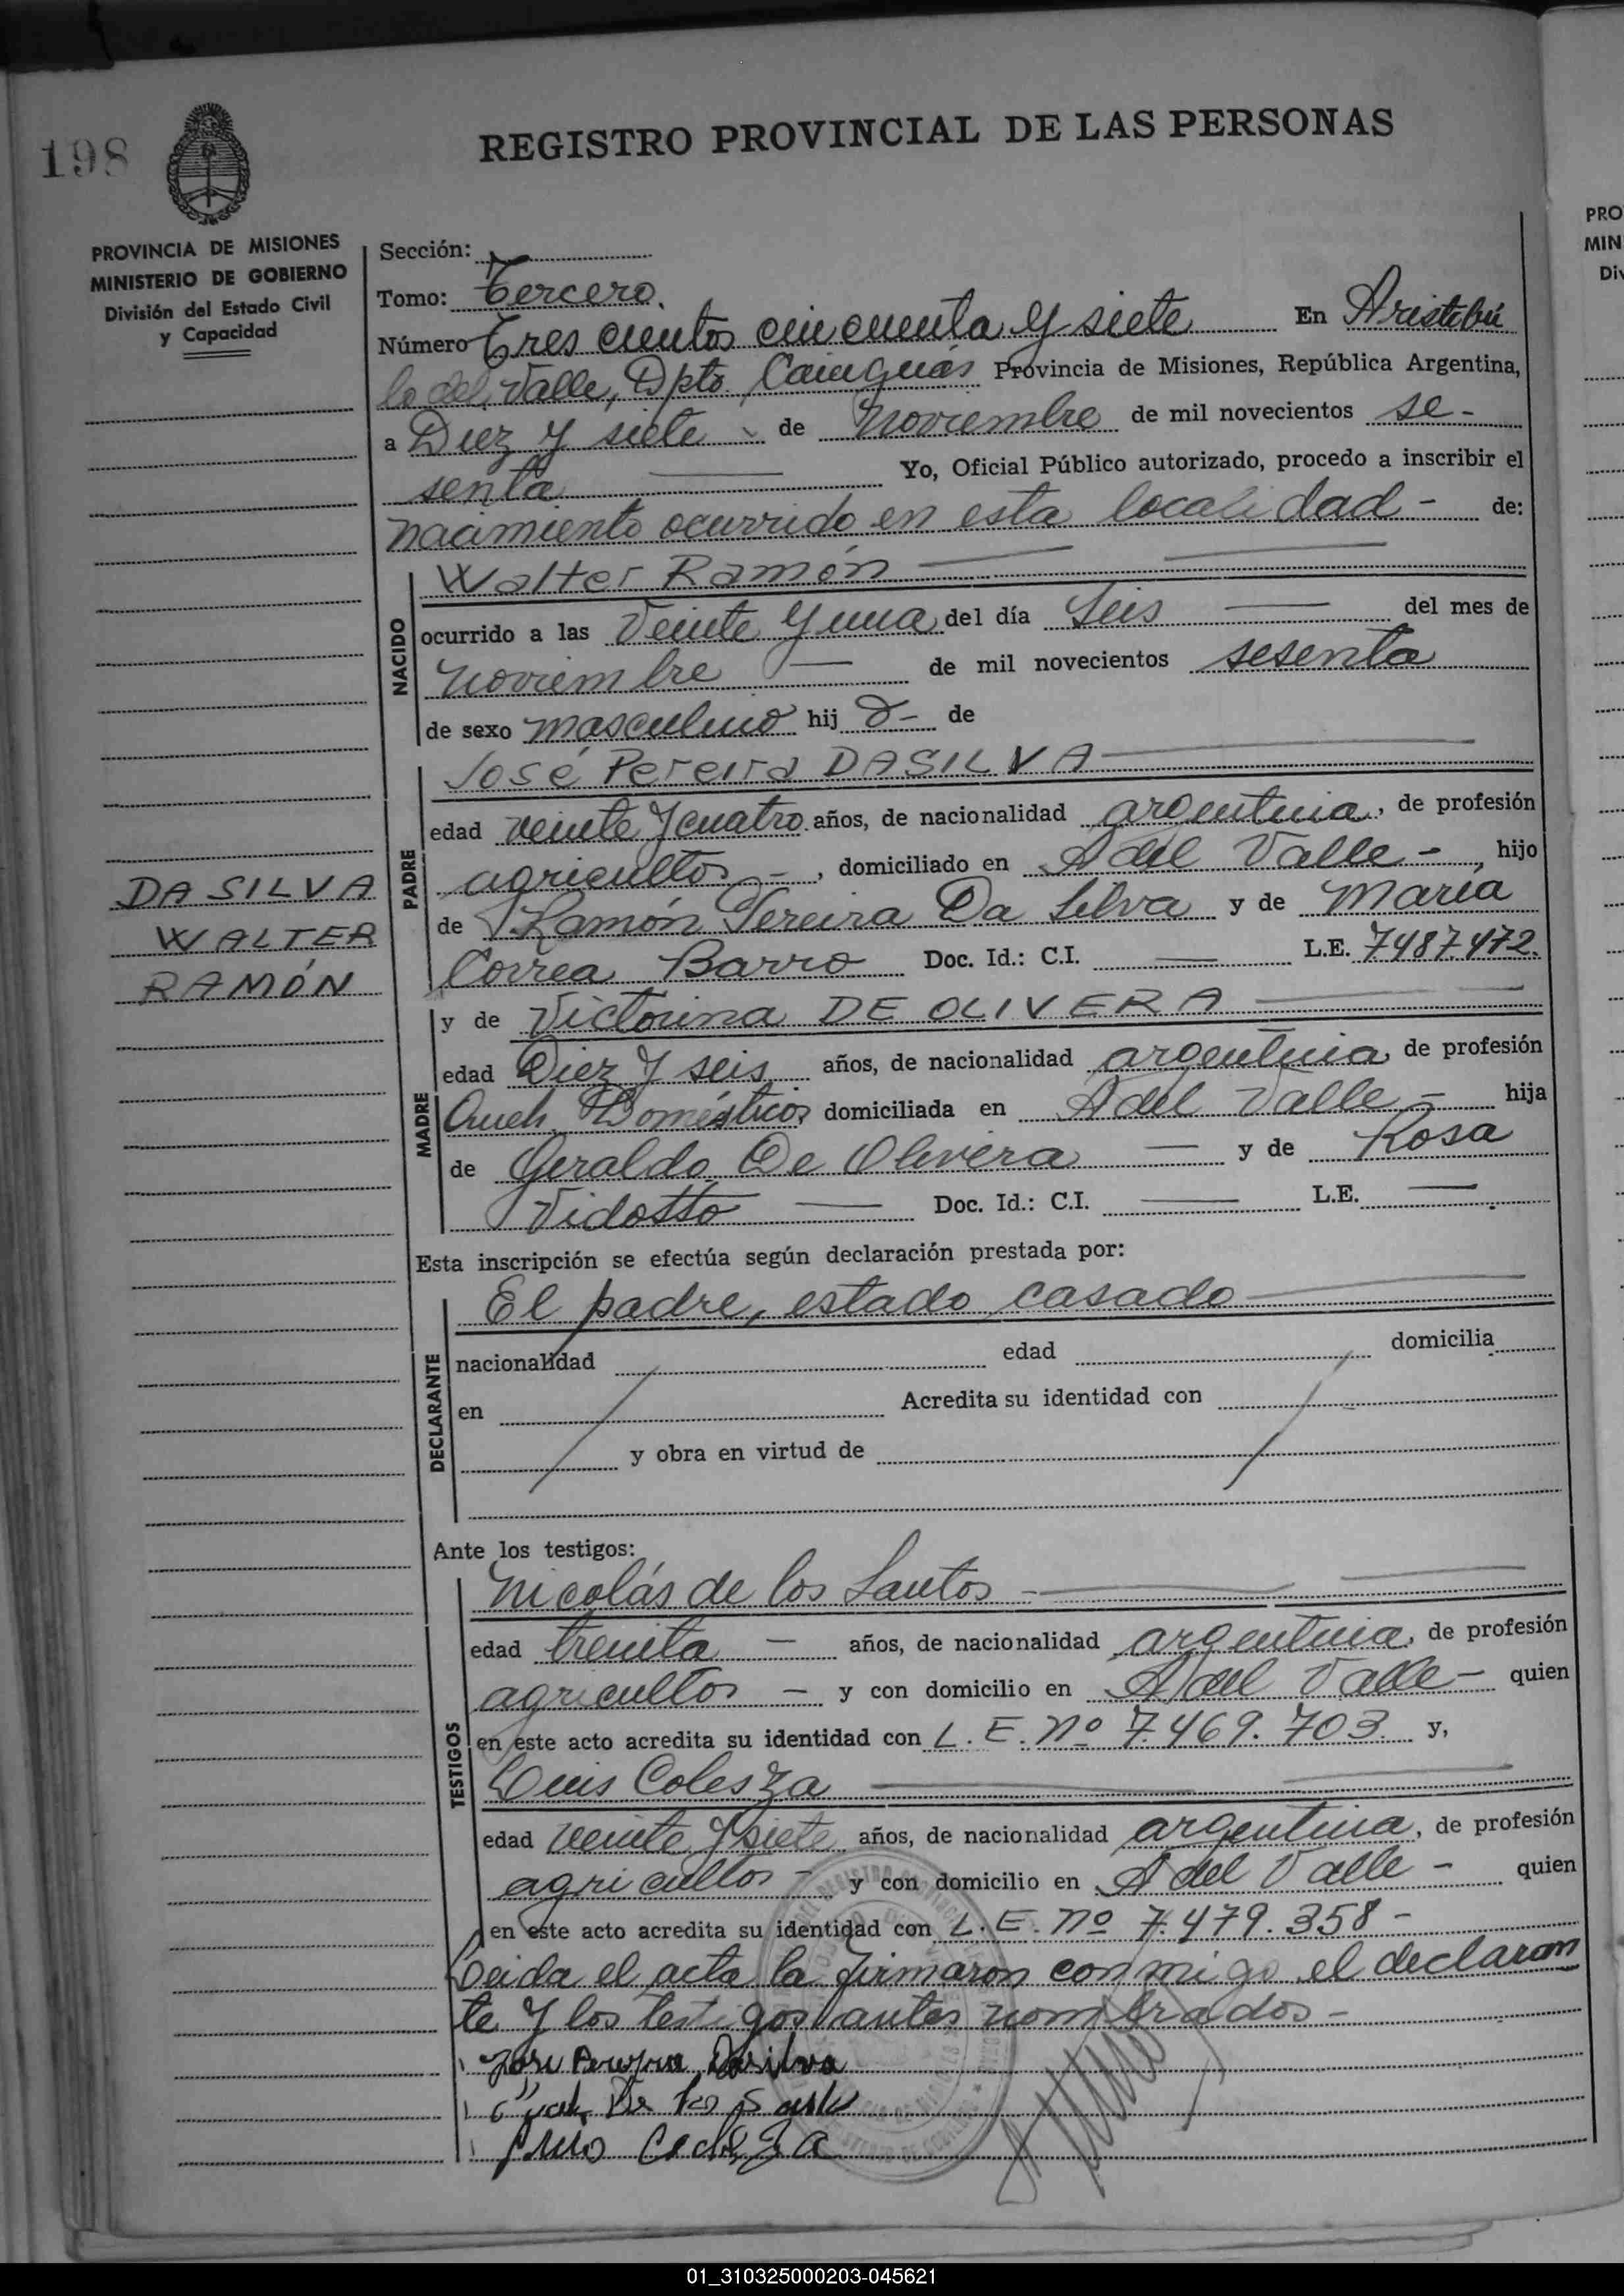 198
REGISTRO PROVINCIAL DE LAS PERSONAS
PROVINCIA DE MISIONES
MINISTERIO DE GOBIERNO
División del Estado Civil
y Capacidad
Sección:
Tomo: Tercero.
Número Tres cientos cincuenta y siete En Aristóbu
lo del Valle, Dpto. Cainguás Provincia de Misiones, República Argentina,
a Diez y siete de noviembre de mil novecientos se-
senta Yo, Oficial Público autorizado, procedo a inscribir el
nacimiento ocurrido en esta localidad - de:
NACIDO
Walter Ramón
ocurrido a las Veinte y una del día Seis del mes de
noviembre de mil novecientos sesenta
de sexo masculino hij o- de
PADRE
José Pereira DASILVA
edad veinte y cuatro años, de nacionalidad argentina, de profesión
agricultor -, domiciliado en A del Valle -, hijo
de Ramón Pereira Da Silva y de María
Correa Barro Doc. Id.: C.I. L.E. 7487.472.
DA SILVA
WALTER
RAMÓN
MADRE
y de Victorina DE OLIVERA
edad Diez y seis años, de nacionalidad argentina, de profesión
Queh. Domésticos domiciliada en A del Valle - hija
de Geraldo De Olivera y de Rosa
Vidotto Doc. Id.: C.I. L.E.
Esta inscripción se efectúa según declaración prestada por:
DECLARANTE
El padre, estado casado
nacionalidad edad domicilia
en Acredita su identidad con
y obra en virtud de
Ante los testigos:
TESTIGOS
Nicolás de los Santos -
edad treinta - años, de nacionalidad argentina, de profesión
agricultor - y con domicilio en A del Valle - quien
en este acto acredita su identidad con L.E. Nº 7.469.703. y,
Luis Colesza
edad veinte y siete años, de nacionalidad argentina, de profesión
agricultor - y con domicilio en A del Valle - quien
en este acto acredita su identidad con L.E. Nº 7.479.358 -
Leida el acta la firmaron conmigo el declaran
te y los testigos antes nombrados -
José Dasilva
De los
PRO
MIN
Div
01_310325000203-045621